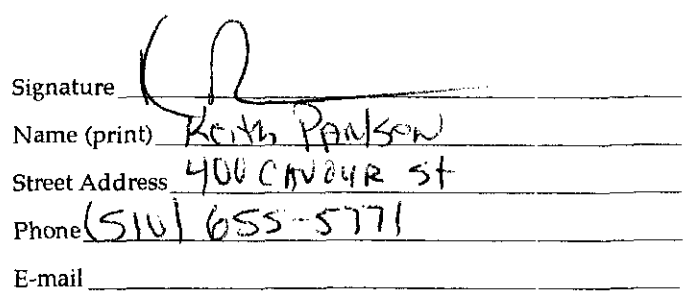 Signature
Name (print) Keith PAulSON
Street Address 400 CAVOUR St
Phone (510) 655-5771
E-mail